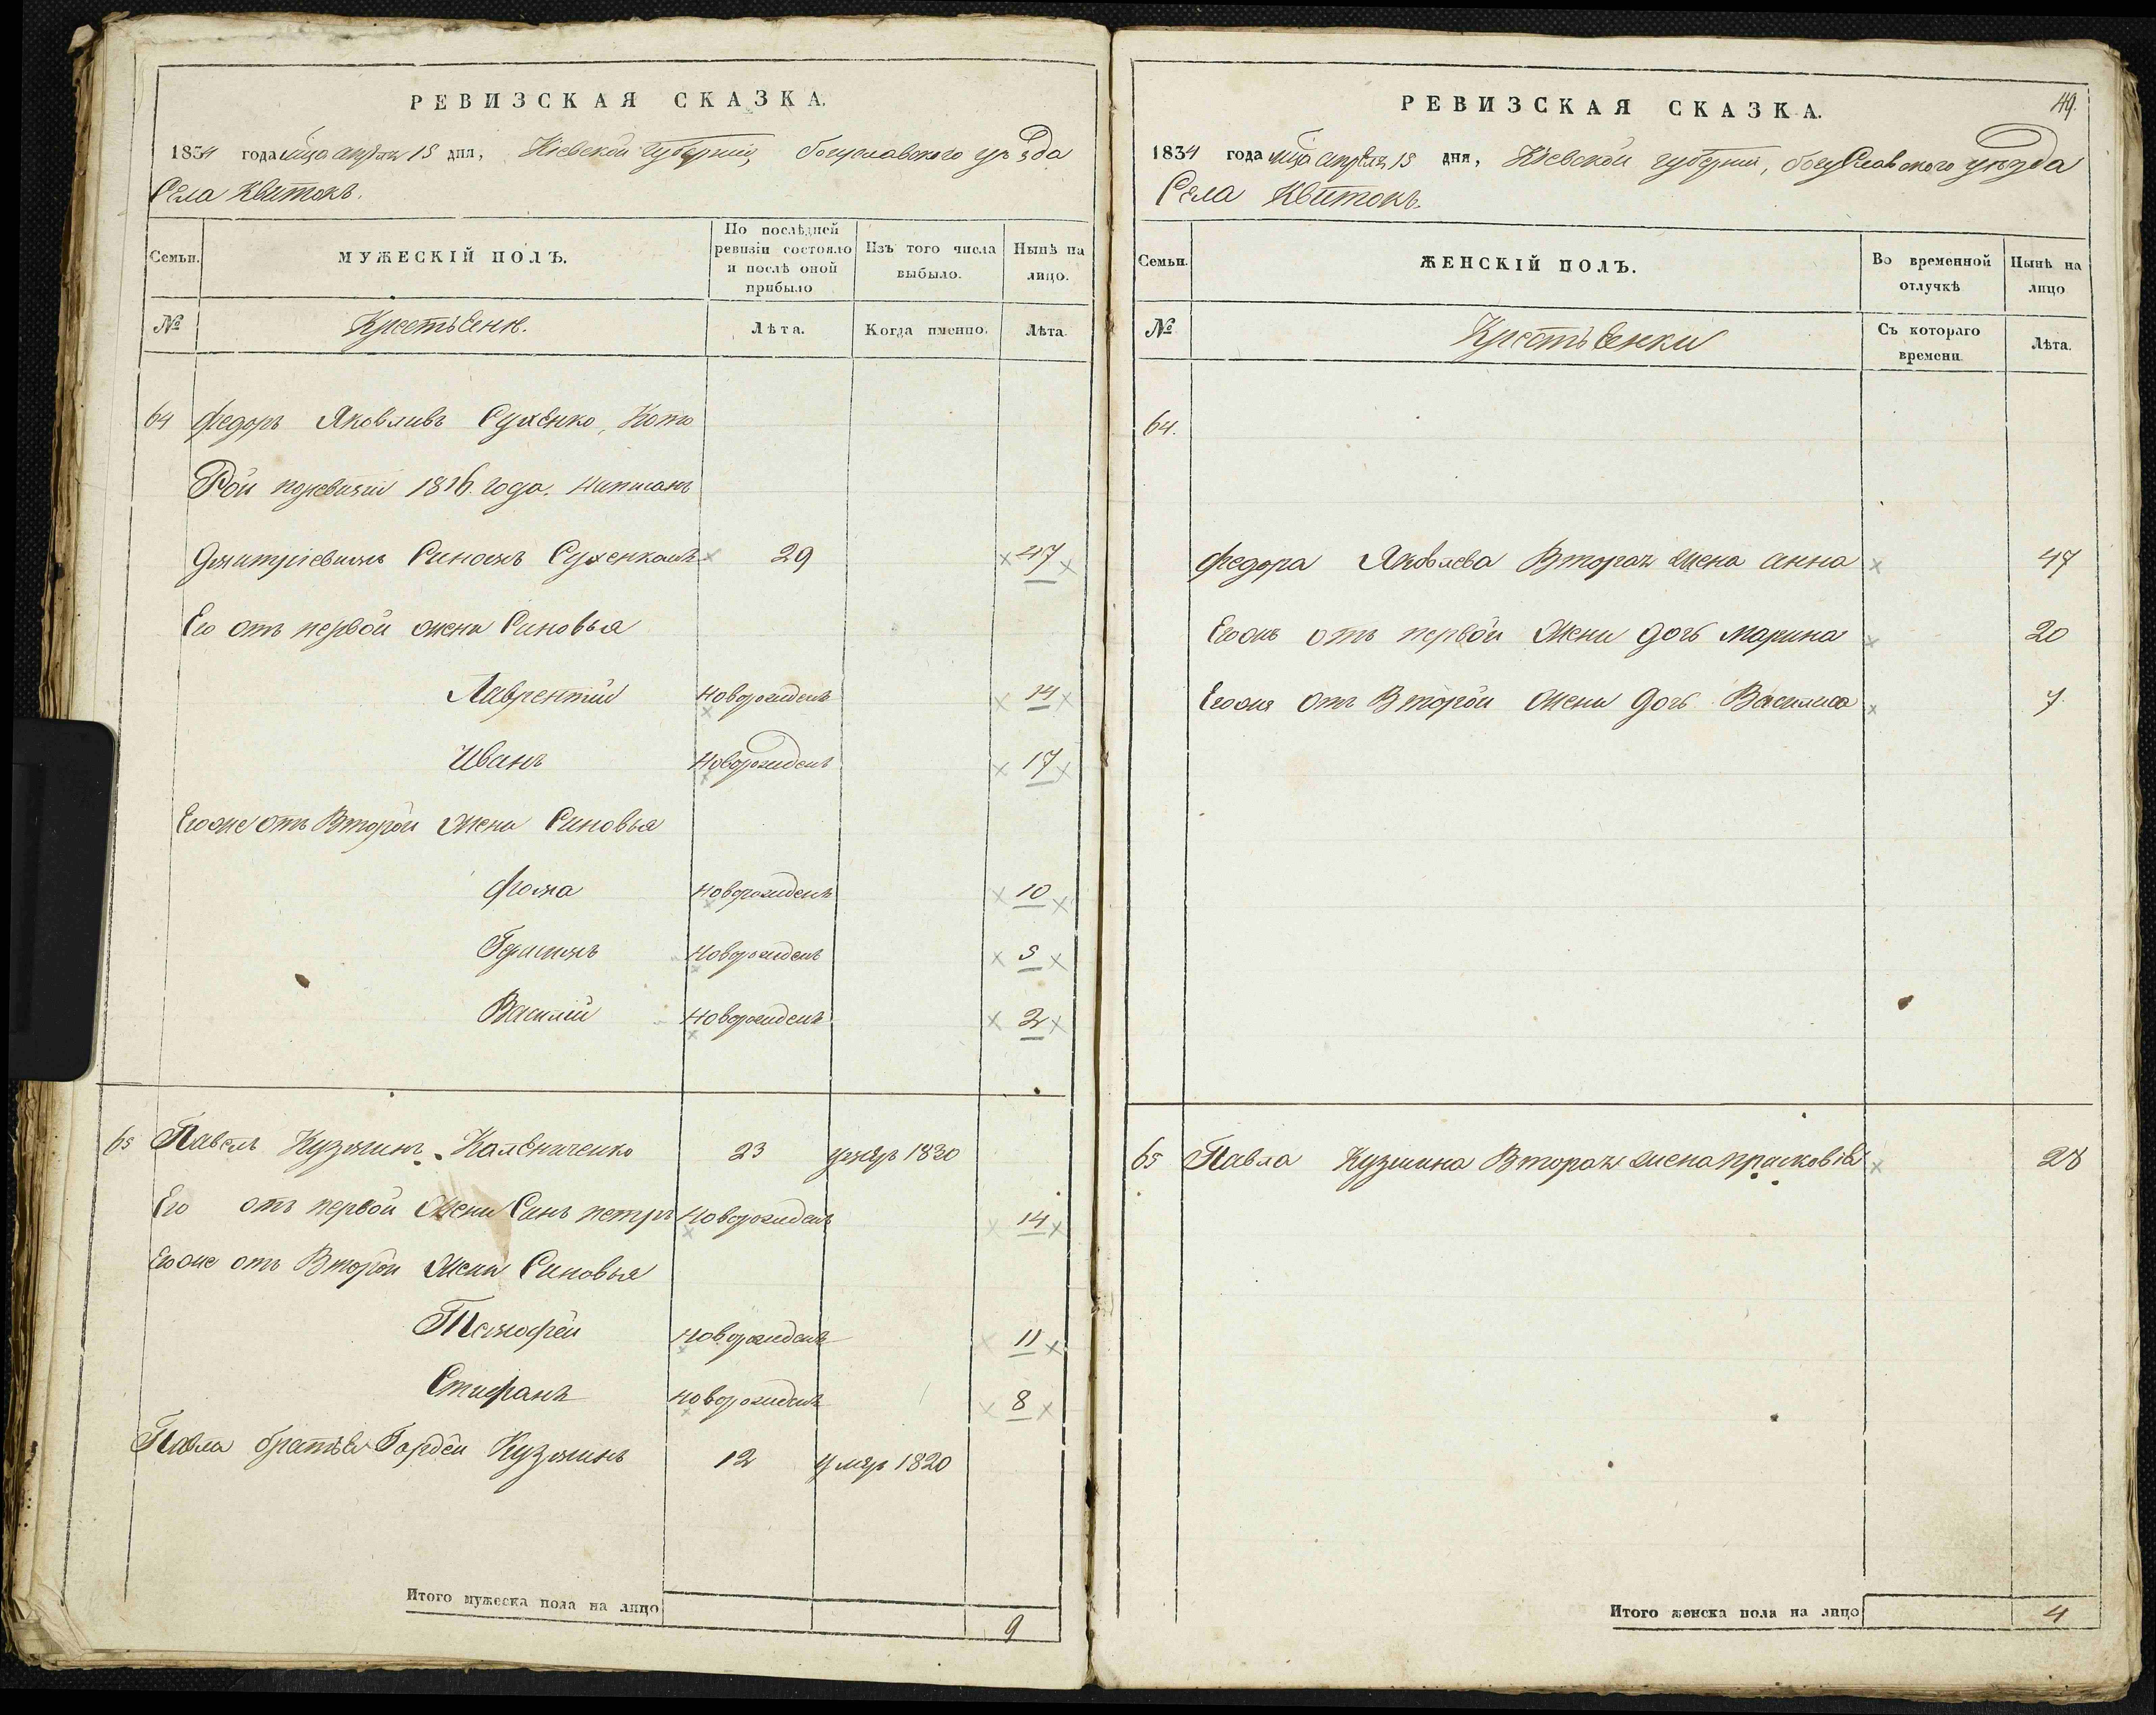 РЕВИЗСКАЯ СКАЗКА.
1834 года мца апреля 15 дня, Кіевской губерніи, богуславского уѣзда
Села Квитокъ.
Семьи.
МУЖЕСКІЙ ПОЛЪ.
По послѣдней ревизіи состояло и послѣ оной прибыло
Изъ того числа выбыло.
Нынѣ на лицо.
№
Крестьяне.
Лѣта.
Когда именно.
Лѣта.
64 Федоръ Яковливъ Сухенко, Кото
Рой поревизіи 1816 года. написанъ
Дмитріевимъ Синомъ Сухенкомъ 29 47
Его отъ первой жени Синовья
Лаврентій новорожденъ 14
Иванъ Новорожденъ 17
Егоже отъ Второй жени Синовья
Фома новорожденъ 10
Герасимъ новорожденъ 5
Василій новорожденъ 2
65 Павелъ Кузминъ Каленниченко 23 умеръ 1820
Его отъ первой Жени Синъ петръ Новорожденъ 14
Егоже отъ Второй Жени Синовья
Тимофей новорожденъ 11
Стифанъ новорожденъ 8
Павла братья Гордей Кузминъ 12 умеръ 1820
Итого мужеска пола на лицо 9
49.
РЕВИЗСКАЯ СКАЗКА.
1834 года мца апреля 15 дня, Кіевской губерніи, богуславского уѣзда
Села Квитокъ.
Семьи.
ЖЕНСКІЙ ПОЛЪ.
Во временной отлучкѣ
Нынѣ на лицо
№
Крестьянки
Съ котораго времени
Лѣта.
64.
Федора Яковлева Вторая жена анна 47
Егожъ отъ первой Жени дочъ марина 20
Егоже отъ Второй Жени дочъ Васили́са 7.
65 Павла Кузмина Вторая жена прасковія 28
Итого женска пола на лицо 4